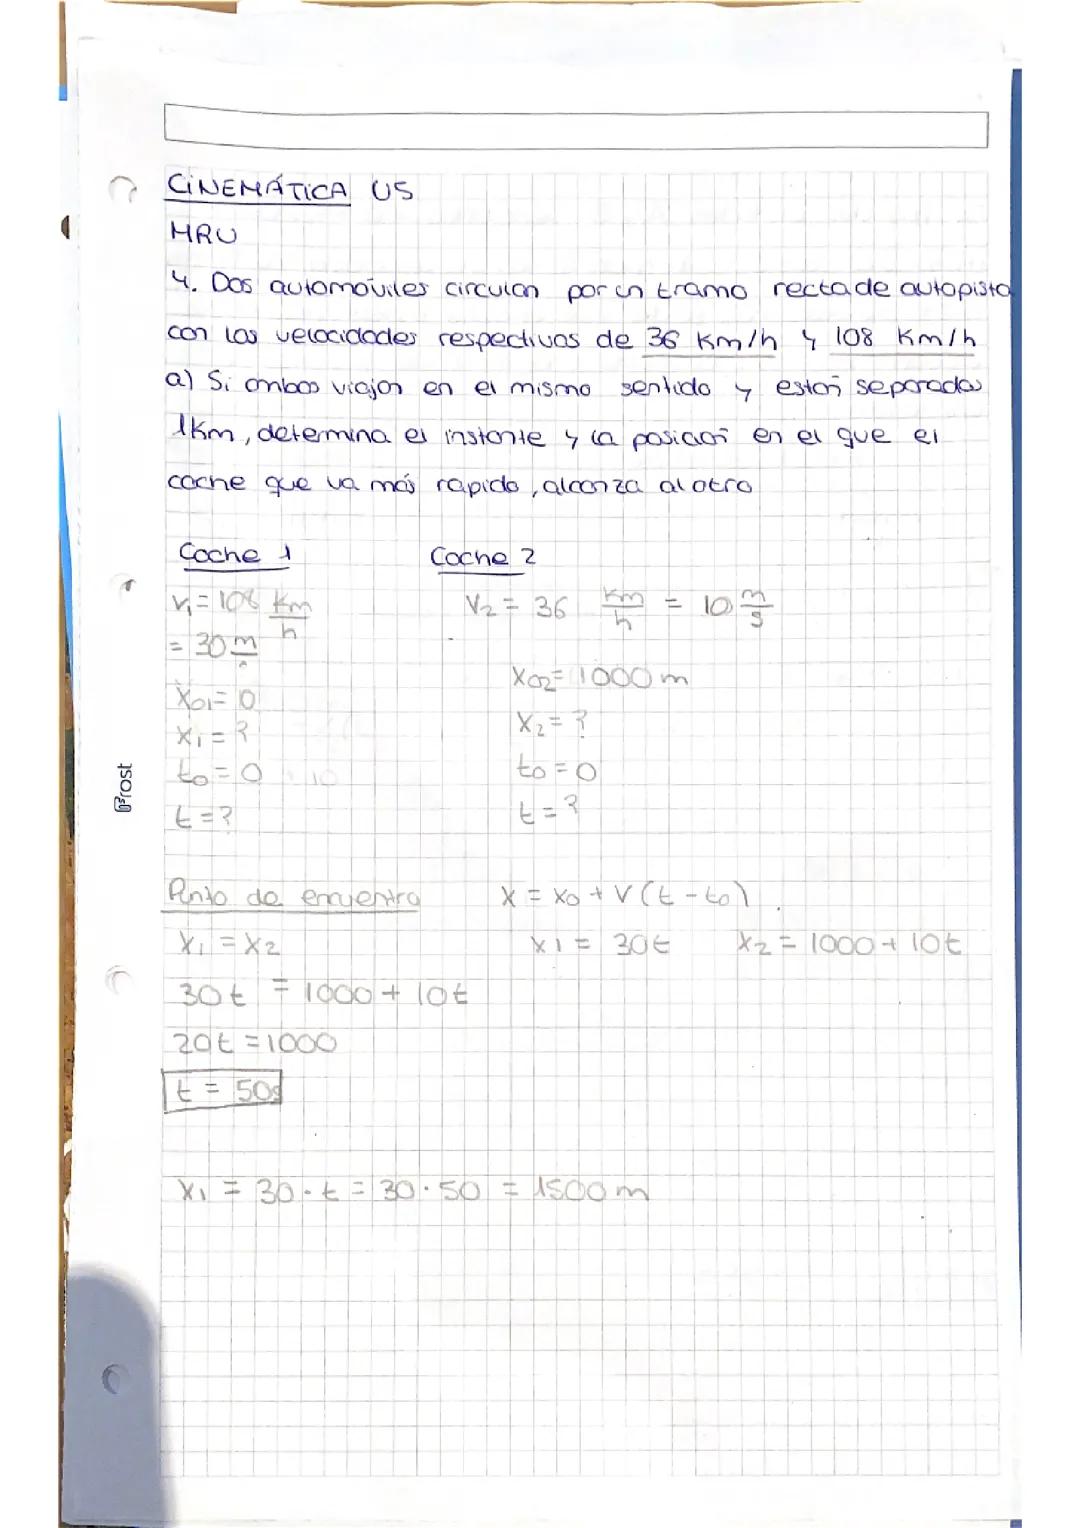 CINEMÁTICA U5
MRU
4. Dos automóviles circulan por un tramo recta de autopista
con las velocidades respectivas de 36 Km/h y 108 Km/h
a) Si ambos viajan en el mismo sentido y están separados
1Km, determina el instante y la posición en el que el
coche que va más rápido, alcanza al otro
Coche 1 Coche 2
V₁ = 108 Km/h V₂ = 36 Km/h = 10 m/s
= 30 m/s
X₀₁ = 0 X₀₂ = 1000 m
X₁ = ? X₂ = ?
t₀ = 0 t₀ = 0
t = ? t = ?
Punto de encuentro X = X₀ + V (t - t₀)
X₁ = X₂ X₁ = 30t X₂ = 1000 + 10t
30t = 1000 + 10t
20t = 1000
t = 50s
X₁ = 30 · t = 30 · 50 = 1500 m
Frost